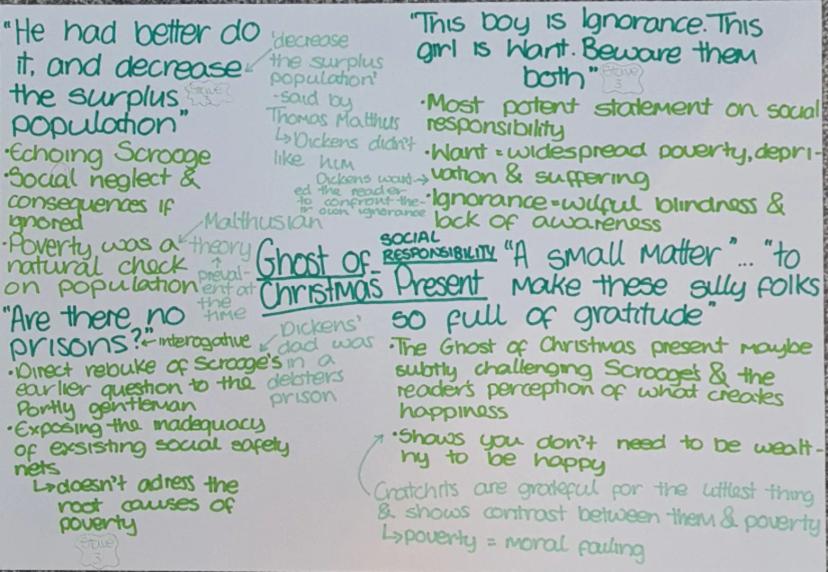 "He had better do
it, and decrease
the surplus
population"
Stave
3
•Echoing Scrooge
•Social neglect &
consequences if
ignored
•Poverty was a
natural check
on population
'decrease
the surplus
population'
-said by
Thomas Malthus
↳Dickens didn't
like him
Malthusian
theory
↑
preval-
ent at
the
time
"This boy is Ignorance. This
girl is Want. Beware them
both"
Stave
3
•Most potent statement on social
responsibility
•Want = widespread poverty, depri-
vation & suffering
•Ignorance = wilful blindness &
lack of awareness
Dickens want→
ed the reader
to confront the-
ir own ignorance
Ghost of
Christmas Present
SOCIAL
RESPONSIBILITY
"Are there no
prisons?" ← interogative
•Direct rebuke of Scrooge's
earlier question to the
Portly gentleman
•Exposing the inadequacy
of exsisting social safety
nets
↳doesn't adress the
root causes of
poverty
Stave
3
Dickens'
dad was
in a
debters
prison
"A small matter"... "to
make these silly folks
so full of gratitude"
•The Ghost of Christmas present maybe
subtly challenging Scrooge's & the
reader's perception of what creates
happiness
•Shows you don't need to be wealt-
hy to be happy
Cratchits are grateful for the littlest thing
& shows contrast between them & poverty
↳poverty = moral failing